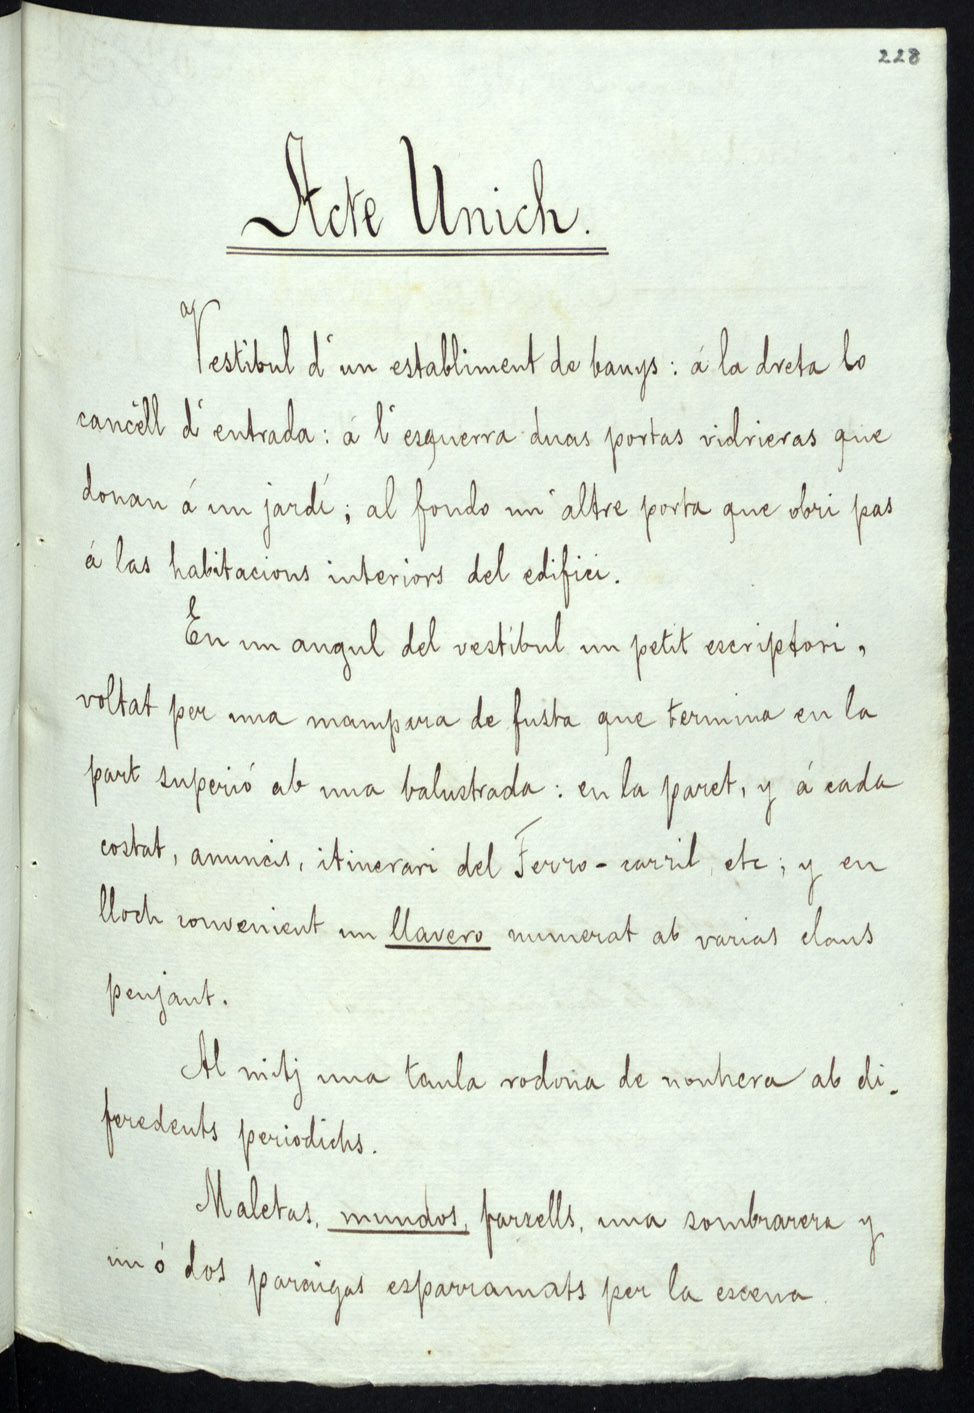 228
Acte Unich.
Vestibul d'un establiment de banys: á la dreta lo
cancéll d'entrada: á l'esquerra duas portas vidrieras que
donan á un jardí; al fondo un altre porta que obri pas
á las habitacions interiors del edifici.
En un angul del vestíbul un petit escriptori,
voltat per una mampara de fusta que termina en la
part superió ab una balustrada: en la paret, y á cada
costat, anuncis, itinerari del Ferro-carril, etc; y en
lloch convenient un llavero numerat ab varias claus
penjant.
Al mitj una taula rodona de nouhera ab di-
feredents periodichs.
Maletas, mundos, farsells, una sombrarera y
un ó dos paraigas esparramats per la escena.